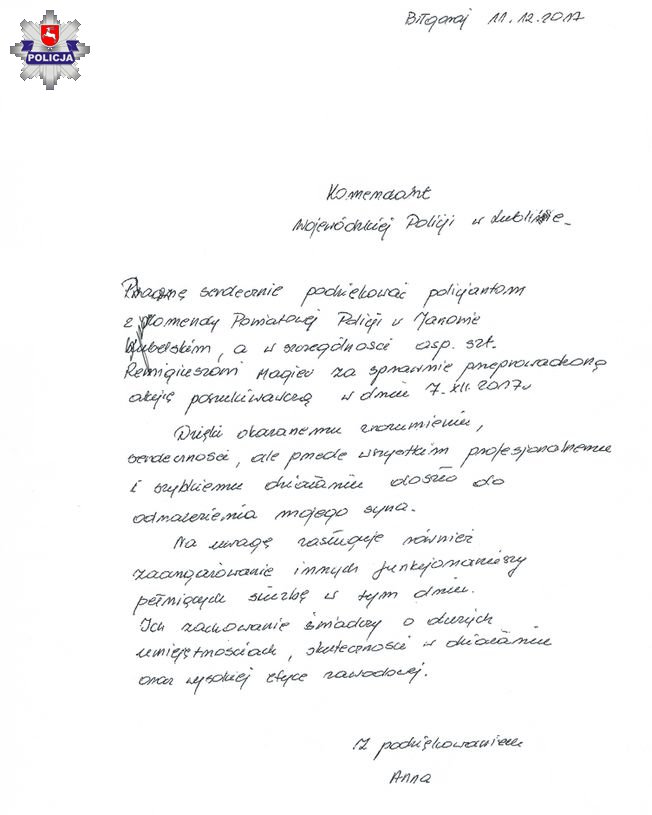 POLICJA
Biłgoraj 11.12.2017
Komendant
Wojewódzkiej Policji w Lublinie
Pragnę serdecznie podziękować policjantom
z Komendy Powiatowej Policji w Janowie
Lubelskim, a w szczególności asp. szt.
Remigiuszowi za sprawnie przeprowadzoną
akcję poszukiwawczą w dniu 7.XII.2017r
Dzięki okazanemu zrozumieniu,
serdeczności, ale przede wszystkim profesjonalnemu
i szybkiemu działaniu doszło do
odnalezienia mojego syna.
Na uwagę zasługuje również
zaangażowanie innych funkcjonariuszy
pełniących służbę w tym dniu.
Ich zachowanie świadczy o dużych
umiejętnościach, skuteczności w działaniu
oraz wysokiej etyce zawodowej.
Z podziękowaniem
Anna